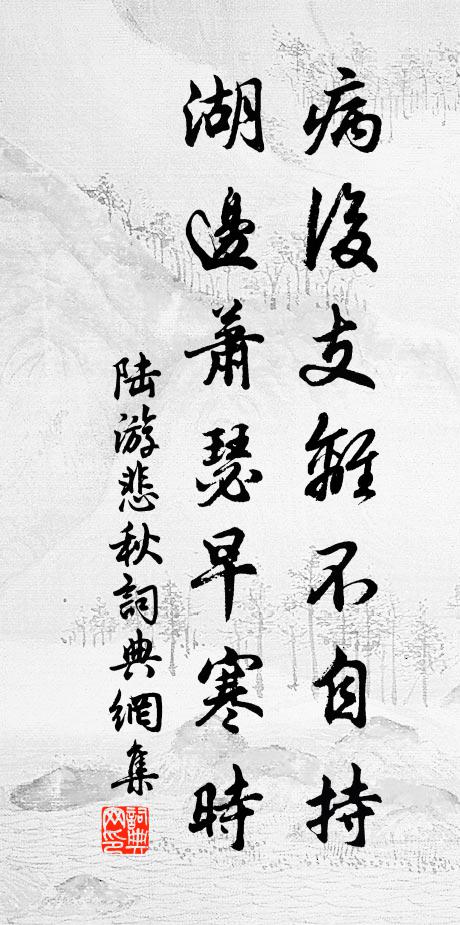 病後支離不自持
湖邊蕭瑟早寒時
陸游悲秋詞典網集
詞典網印